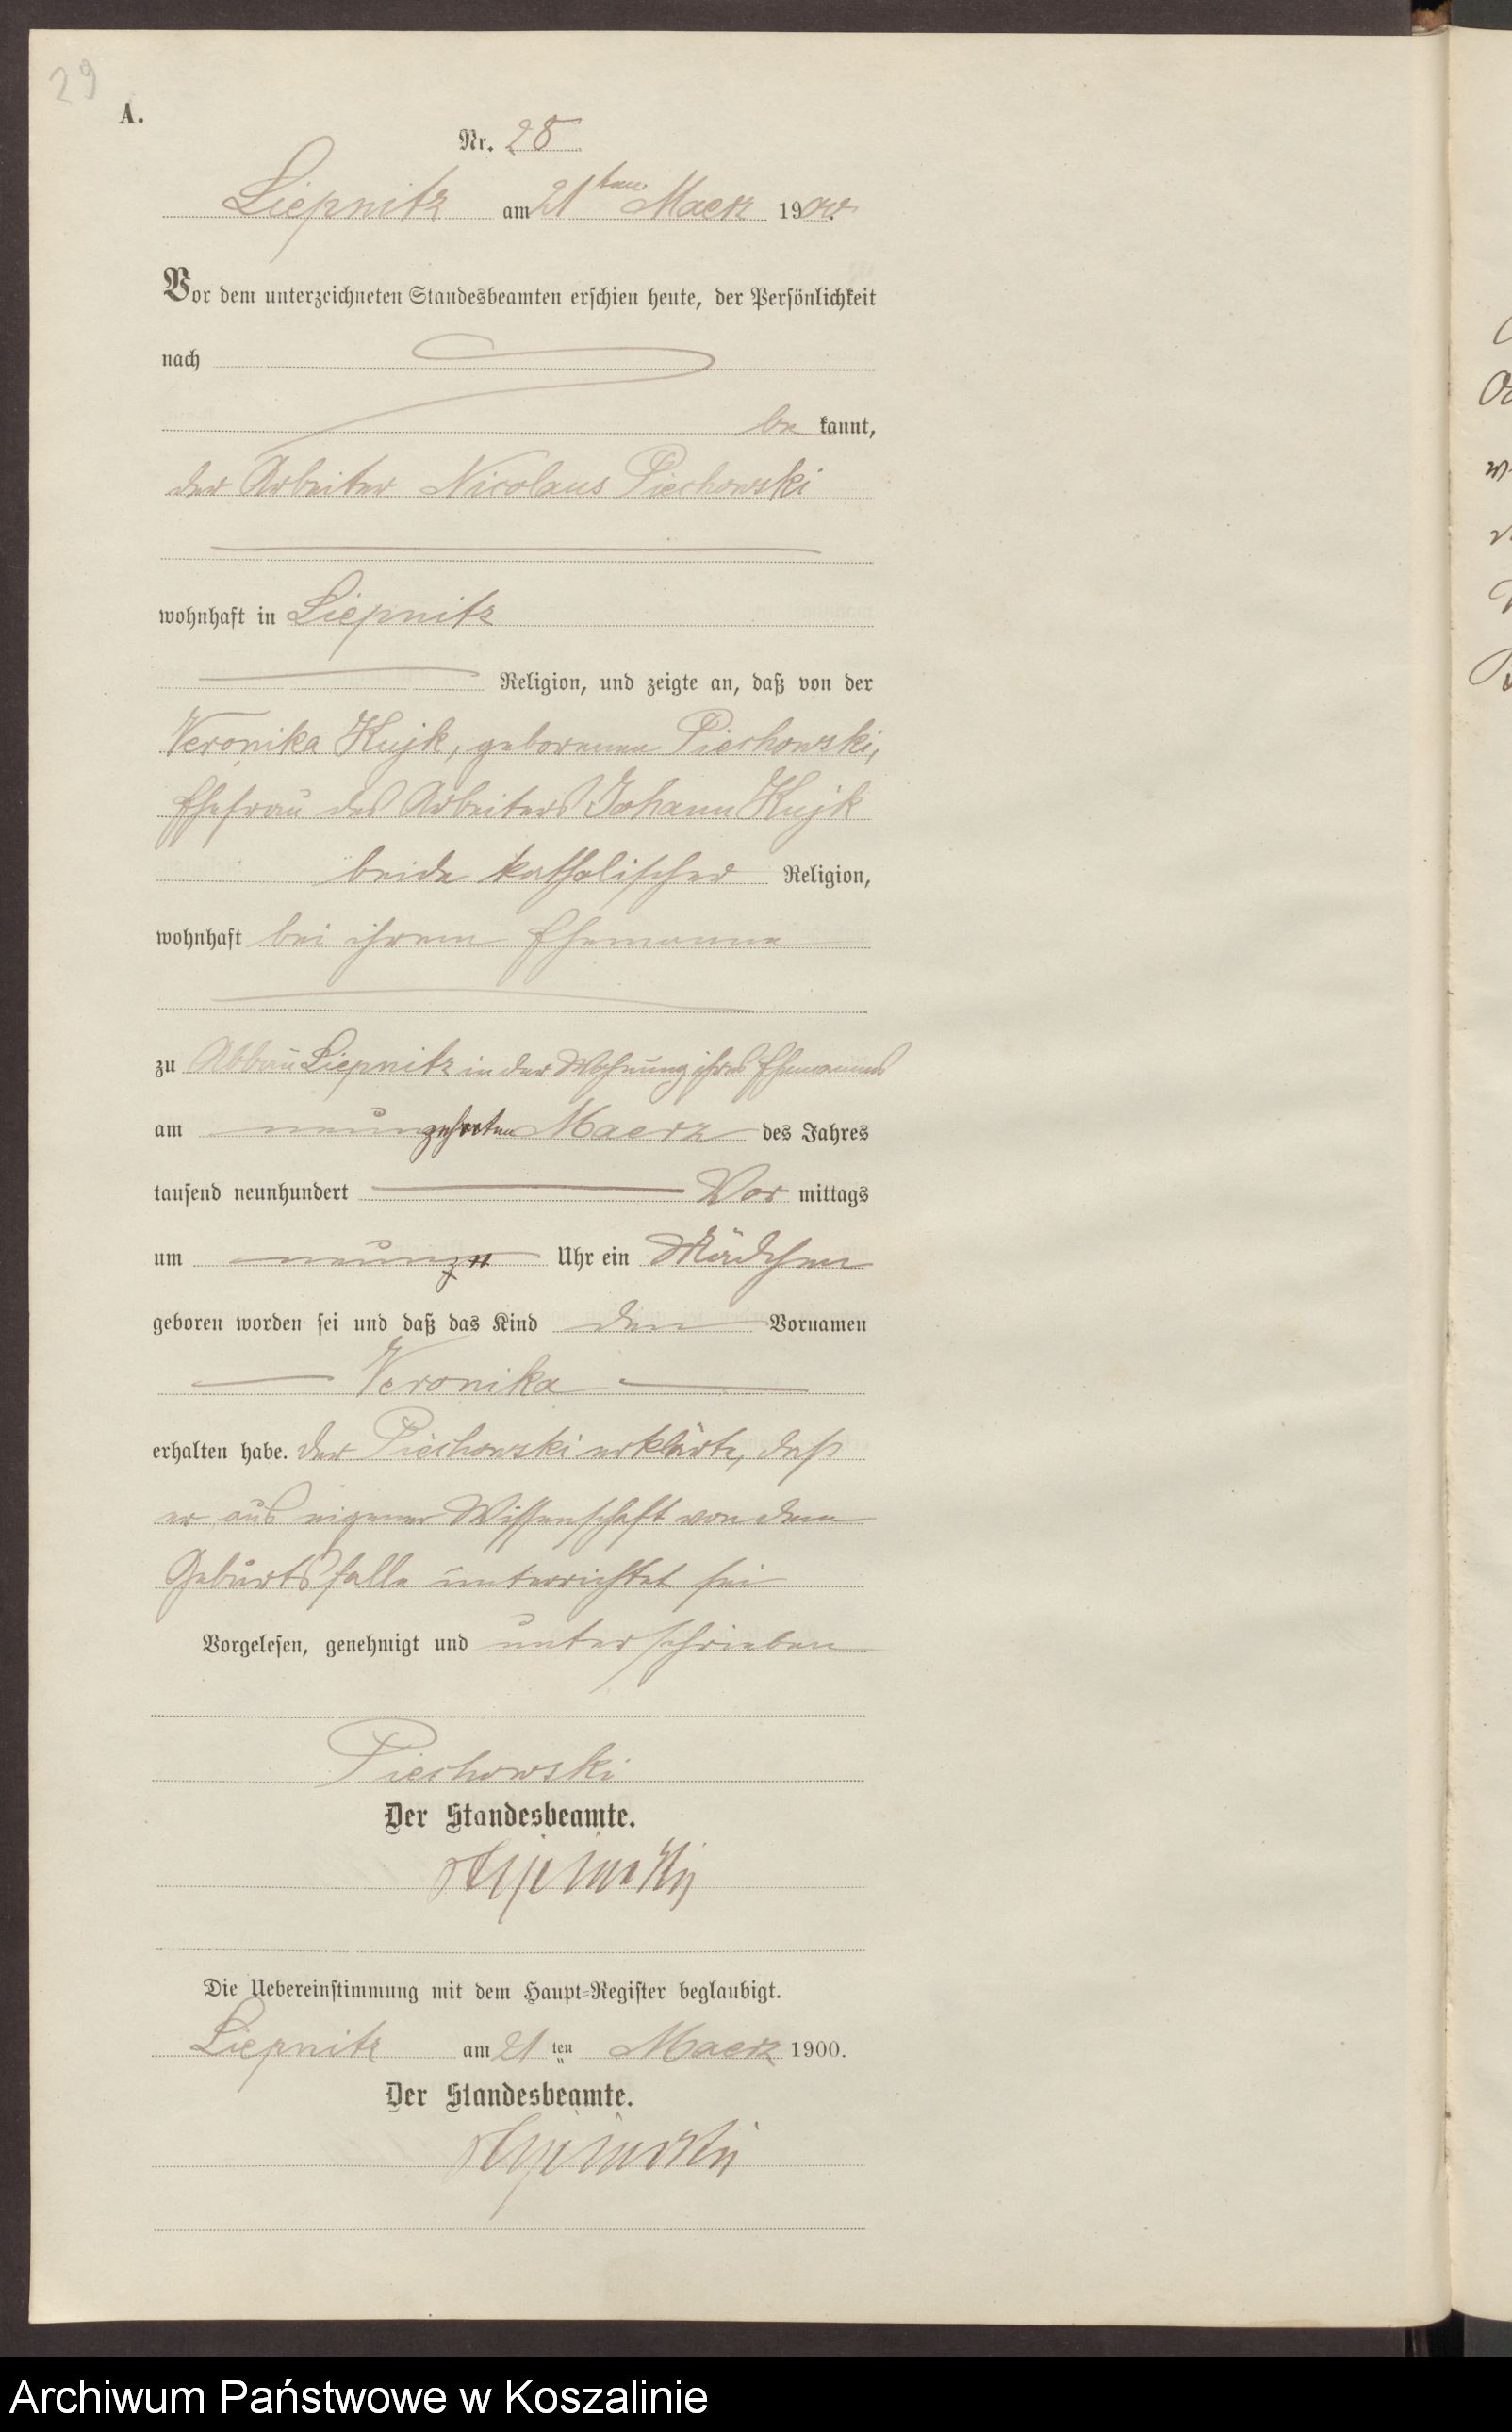 29
A.
Nr. 28
Liepnitz am 21ten Maerz 1900.
Vor dem unterzeichneten Standesbeamten erschien heute, der Persönlichkeit
nach
be kannt,
der Arbeiter Nicolaus Piechowski
wohnhaft in Liepnitz
Religion, und zeigte an, daß von der
Veronika Kujk, geborenen Piechowski,
Ehefrau des Arbeiters Johann Kujk
beide katholischer Religion,
wohnhaft bei ihrem Ehemanne
zu Abbau Liepnitz in der Wohnung ihres Ehemannes
am neunzehnten Maerz des Jahres
tausend neunhundert Vor mittags
um Uhr ein Mädchen
geboren worden sei und daß das Kind den Vornamen
Veronika
erhalten habe. Der Piechowski erklärte, daß
er aus eigener Wissenschaft von dem
Geburtsfalle unterrichtet sei
Vorgelesen, genehmigt und unterschrieben
Piechowski
Der Standesbeamte.
Die Uebereinstimmung mit dem Haupt-Register beglaubigt.
Liepnitz am 21 ten Maerz 1900.
Der Standesbeamte.
Archiwum Państwowe w Koszalinie